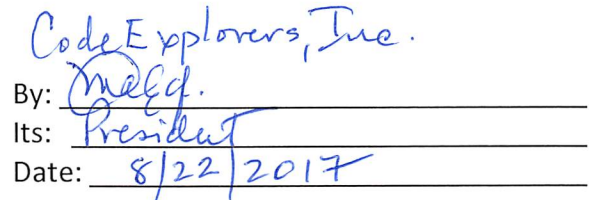 CodeExplorers, Inc.
By:
Its: President
Date: 8/22/2017